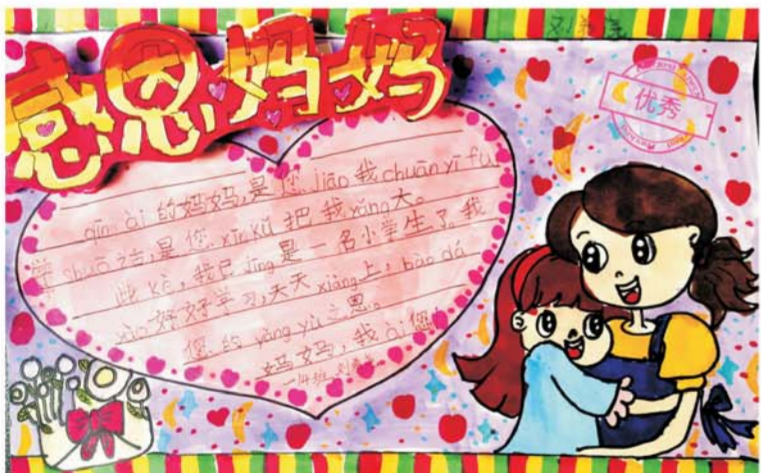 感恩妈妈
优秀
qīn ài 的妈妈,是您 jiāo 我 chuān yī fu
学 shuō 话,是您 xīn kǔ 把我 yǎng 大。
此 kè,我已 jīng 是一名小学生了。我
好好学习,天天 xiàng 上,bào dá
您的 yǎng yù 之恩。
妈妈,我 ài 您!
一年班